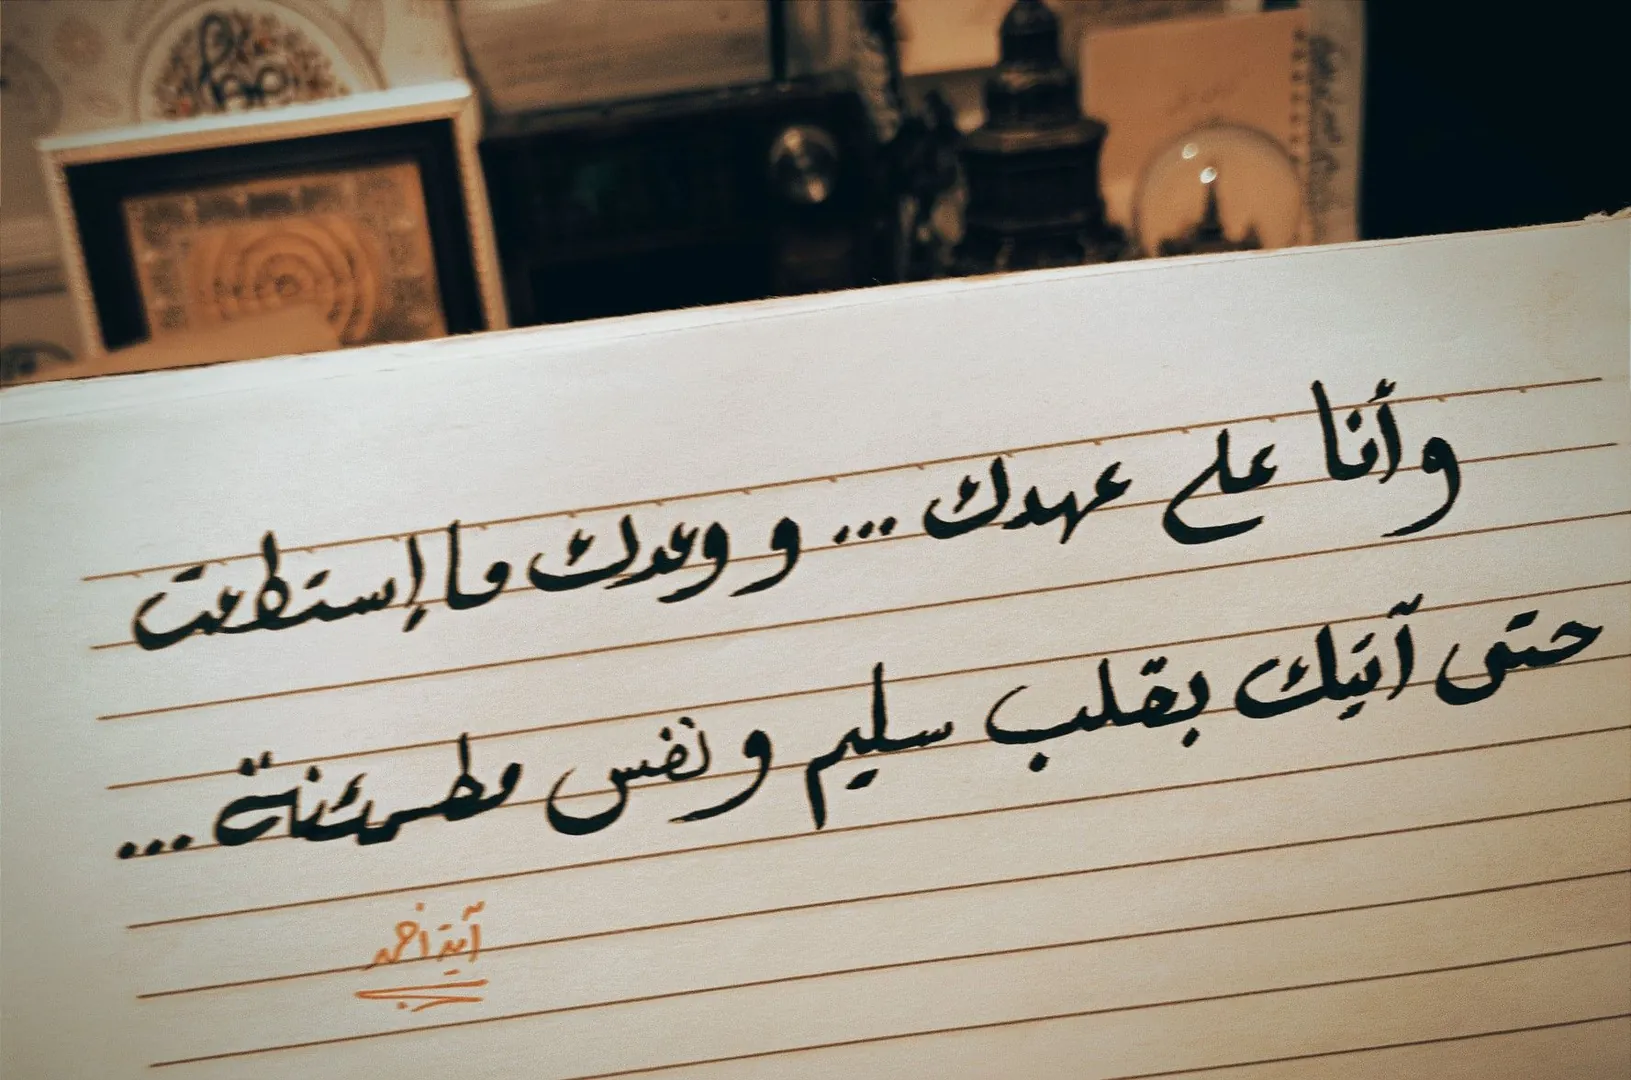 وأنا على عهدك ... و وعدك ما إستطعت
حتى آتيك بقلب سليم و نفس مطمئنة ...
آية أحمد